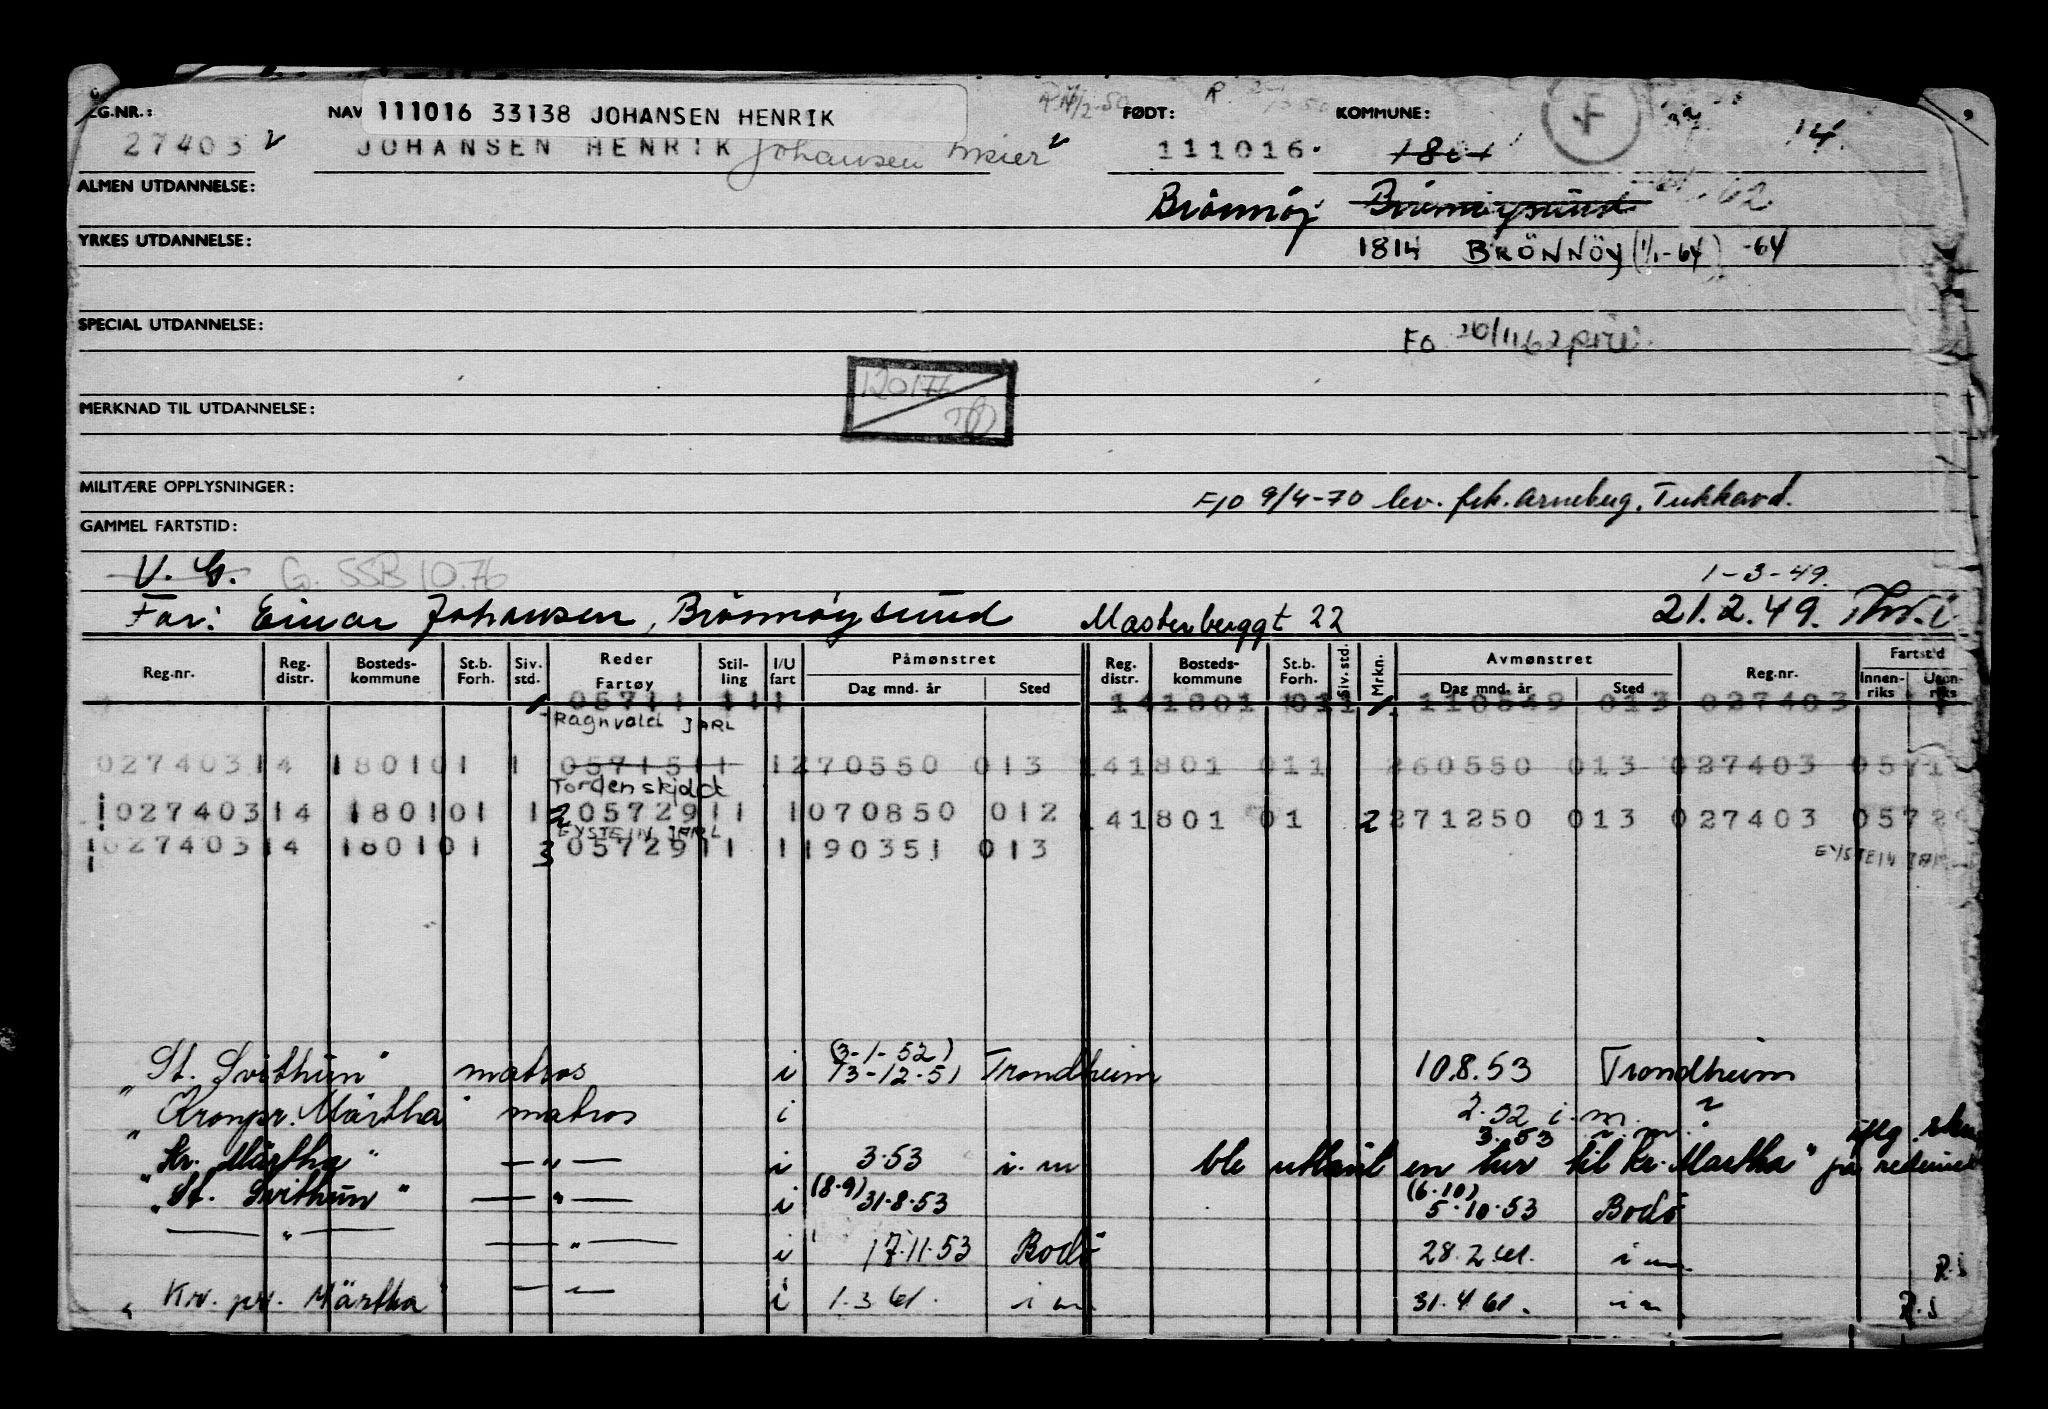 REG.NR.: NAVN 111016 33138 JOHANSEN HENRIK FØDT: KOMMUNE: F 14.
27403 JOHANSEN HENRIK Johansen Meier 111016. 1801
ALMEN UTDANNELSE: Brönnöy Brönnöysund 62
YRKES UTDANNELSE: 1814 BRÖNNÖY (1/1-64) -64
SPECIAL UTDANNELSE: Fo 20/11 62
120176
MERKNAD TIL UTDANNELSE:
MILITÆRE OPPLYSNINGER: F/O 9/4-70 lev. frk. Arneberg, Trekkavd.
GAMMEL FARTSTID:
V. G. G. SSB 10.76 1-3-49.
Far: Einar Johansen, Brönnöysund Masterberggt 22 21.2.49.
Reg.nr. Reg. distr. Bosteds-kommune St.b. Forh. Siv. std. Reder Fartøy Stil-ling I/U fart Påmønstret Dag mnd. år Sted Reg. distr. Bosteds-kommune St.b. Forh. Siv. std. Mrkn. Avmønstret Dag mnd. år Sted Reg.nr. Fartstid Innen-riks Uten-riks
1 05711 111 141801 011 1 110849 013 027403
Ragnvald JARL
027403 14 1801 01 1 05715 11 1 270550 013 141801 011 260550 013 027403 0571
Tordenskjold
027403 14 1801 01 1 2 05729 11 1 070850 012 141801 01 2 271250 013 027403 05729
EYSTEIN JARL
027403 14 1801 01 3 05729 11 1 190351 013 EYSTEIN JARL
"St. Svithun" matros i (3-1-52) 13-12-51 Trondheim 10.8.53 Trondheim
"Kronpr. Märtha" matros i 2.52 i.m.
3.53 i.m.
"Kr. Märtha" — " — i 3.53 i.m ble utlånt en tur til "Kr. Martha" på
"St. Svithun" — " — i (8.9) 31.8.53 (6.10) 5.10.53 Bodö
— " — — " — i 17.11.53 Bodö 28.2.61. i m. R.S
"Kr. pr. Märtha" — " — i 1.3.61. i m. 31.4.61. i m R.S